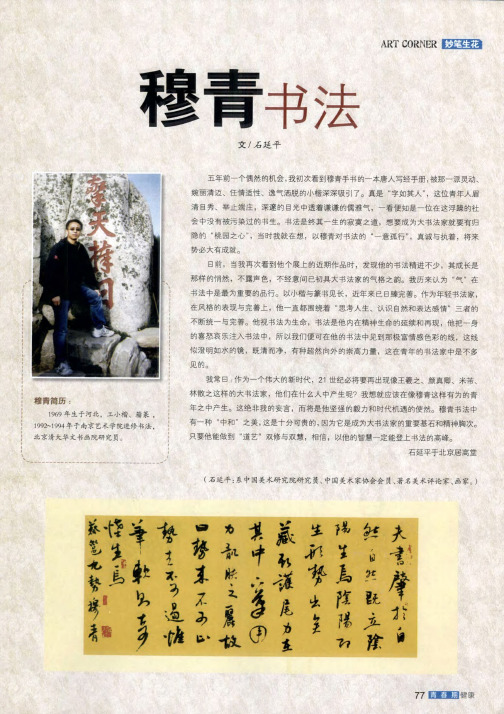 ART CORNER 妙笔生花
穆青书法
文/石延平
五年前一个偶然的机会,我初次看到穆青手书的一本唐人写经手册,被那一派灵动、
婉丽清迈、任情适性、逸气洒脱的小楷深深吸引了。真是“字如其人”,这位青年人眉
清目秀、举止端庄,深邃的目光中透着谦谦的儒雅气,一看便知是一位在这浮躁的社
会中没有被污染过的书生。书法是终其一生的寂寞之道,想要成为大书法家就要有归
隐的“桃园之心”,当时我就在想,以穆青对书法的“一意孤行”,真诚与执着,将来
势必大有成就。
日前,当我再次看到他个展上的近期作品时,发现他的书法精进不少,其成长是
那样的悄然,不露声色,不经意间已初具大书法家的气格之韵。我历来认为“气”在
书法中是最为重要的品行。以小楷与篆书见长,近年来已日臻完善。作为年轻书法家,
在风格的表现与完善上,他一直都围绕着“思考人生、认识自然和表达感情”三者的
不断统一与完善。他视书法为生命,书法是他内在精神生命的延续和再现,他把一身
的喜怒哀乐注入书法中,所以我们便可在他的书法中见到那极富情感色彩的线,这线
似澄明如水的镜,既清而净,有种超然向外的崇高力量,这在青年的书法家中是不多
见的。
我常曰:作为一个伟大的新时代,21世纪必将要再出现像王羲之、颜真卿、米芾、
林散之这样的大书法家,他们在什么人中产生呢?我想就应该在像穆青这样有为的青
年之中产生。这绝非我的妄言,而将是他坚强的毅力和时代机遇的使然。穆青书法中
有一种“中和”之美,这是十分可贵的,因为它是成为大书法家的重要基石和精神胸次。
只要他能做到“道艺”双修与双慧,相信,以他的智慧一定能登上书法的高峰。
石延平于北京居高堂
(石延平:系中国美术研究院研究员、中国美术家协会会员、著名美术评论家、画家。)
穆青简历:
1969年生于河北,工小楷、篆,
1992~1994年于南京艺术学院进修书法,
北京清大华文书画院研究员。
摩天择
夫书肇于自
然自然既立阴
阳生焉阴阳
生形势出矣
藏头护尾力在
其中
力
曰势来不可止
势去不可遏惟
笔软则奇
怪生焉
蔡邕九势穆青
77 青春期健康